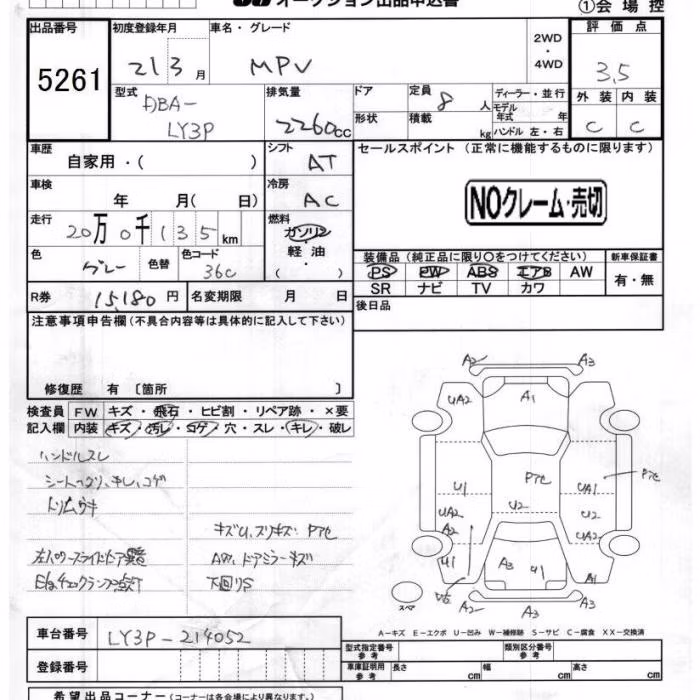 オークション出品申込書
①会場控
出品番号
5261
初度登録年月
21 3 月
車名・グレード
MPV
2WD
・
4WD
評価点
3.5
型式
DBA-
LY3P
排気量
2260cc
ドア
形状
定員 8 人
積載 kg
ディーラー・並行
モデル年式 年
ハンドル 左・右
外装 内装
C C
車歴
自家用・( )
シフト
AT
セールスポイント(正常に機能するものに限ります)
NOクレーム・売切
車検
年 月( 日)
冷房
AC
走行
20万0千135km
燃料
ガソリン
軽油
( )
色
グレー
色替
色コード
36C
装備品(純正品に限り○をつけてください)
PS PW ABS エアB AW
SR ナビ TV カワ
新車保証書
有・無
R券 15,180円
名変期限 月 日
後日品
注意事項申告欄(不具合内容等は具体的に記入して下さい)
修復歴 有〔箇所 〕
検査員 FW キズ・飛石・ヒビ割・リペア跡・×要
記入欄 内装 キズ・汚レ・コゲ・穴・スレ・キレ・破レ
ハンドルスレ
シートヘタリ、キレ、コゲ
トリムウキ
キズU、スリキズ・Pアセ
左パワースライドドア異音
AW、ドアミラーキズ
Engチェックランプ点灯
下回りS
A2 A3
UA2 A1
U1 Pアセ UA1 Pアセ
UA2 U2 U2
A2
U1 A3 U1 A1
A2 A3 A3
スペア
A-キズ E-エクボ U-凹み W-補修跡 S-サビ C-腐食 XX-交換済
車台番号 LY3P-214052
型式指定番号
参考
類別区分番号
参考
登録番号
車庫証明用
参考
長さ cm 幅 cm 高さ cm
希望出品コーナー(コーナーは各会場により異なります)